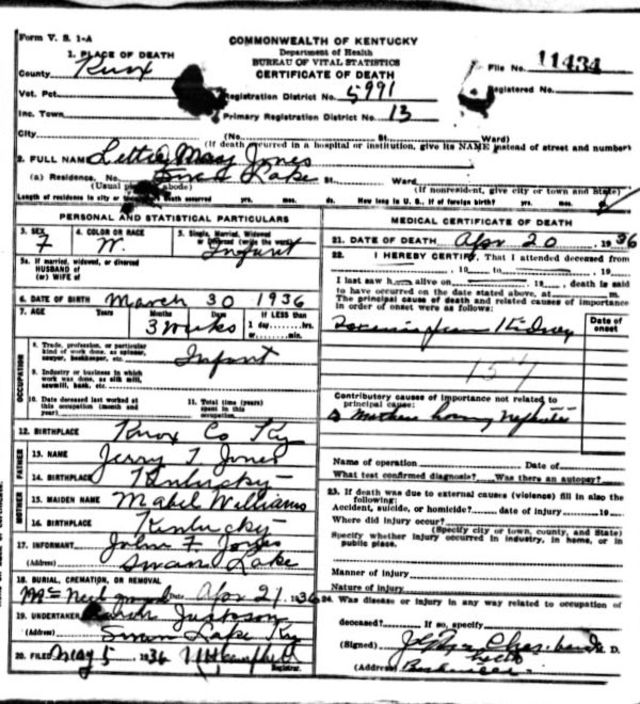 Form V. S. 1-A
COMMONWEALTH OF KENTUCKY
Department of Health
BUREAU OF VITAL STATISTICS
CERTIFICATE OF DEATH
1. PLACE OF DEATH
County Knox
File No. 11434
Registered No.
Vot. Pct. Registration District No. 5991
Inc. Town Primary Registration District No. 13
City (No. St. Ward)
(If death occurred in a hospital or institution, give its NAME instead of street and number)
2. FULL NAME Lettie May Jones
(a) Residence. No. Swan Lake St. Ward
(Usual place of abode) (If nonresident, give city or town and State)
Length of residence in city or town where death occurred yrs. mos. ds. How long in U. S., if of foreign birth? yrs. mos.
PERSONAL AND STATISTICAL PARTICULARS
3. SEX F
4. COLOR OR RACE W.
5. Single, Married, Widowed or Divorced (write the word) Infant
5a. If married, widowed, or divorced
HUSBAND of
(or) WIFE of
6. DATE OF BIRTH March 30 1936
7. AGE Years Months Days If LESS than
3 weeks 1 day,....hrs.
or....min.
OCCUPATION
8. Trade, profession, or particular
kind of work done, as spinner,
sawyer, bookkeeper, etc. Infant
9. Industry or business in which
work was done, as silk mill,
sawmill, bank, etc.
10. Date deceased last worked at
this occupation (month and
year)
11. Total time (years)
spent in this
occupation
12. BIRTHPLACE Knox Co Ky
FATHER
13. NAME Jerry T Jones
14. BIRTHPLACE Kentucky
MOTHER
15. MAIDEN NAME Mabel Williams
16. BIRTHPLACE Kentucky
17. INFORMANT John F. Jones
(Address) Swan Lake
18. BURIAL, CREMATION, OR REMOVAL
Date Apr 21 1936
19. UNDERTAKER
(Address) Swan Lake Ky
20. FILED May 5 1936
Registrar.
MEDICAL CERTIFICATE OF DEATH
21. DATE OF DEATH Apr 20 1936
22. I HEREBY CERTIFY, That I attended deceased from
19 to 19
I last saw h alive on 19 death is said
to have occurred on the date stated above, at m.
The principal cause of death and related causes of importance
in order of onset were as follows:
Date of
onset
from Kidney
157
Contributory causes of importance not related to
principal cause:
Mother having nephritis
Name of operation Date of
What test confirmed diagnosis? Was there an autopsy?
23. If death was due to external causes (violence) fill in also the
following:
Accident, suicide, or homicide? date of injury 19
Where did injury occur?
(Specify city or town, county, and State)
Specify whether injury occurred in industry, in home, or in
public place.
Manner of injury
Nature of injury
24. Was disease or injury in any way related to occupation of
deceased? If so, specify
(Signed) M. D.
(Address)